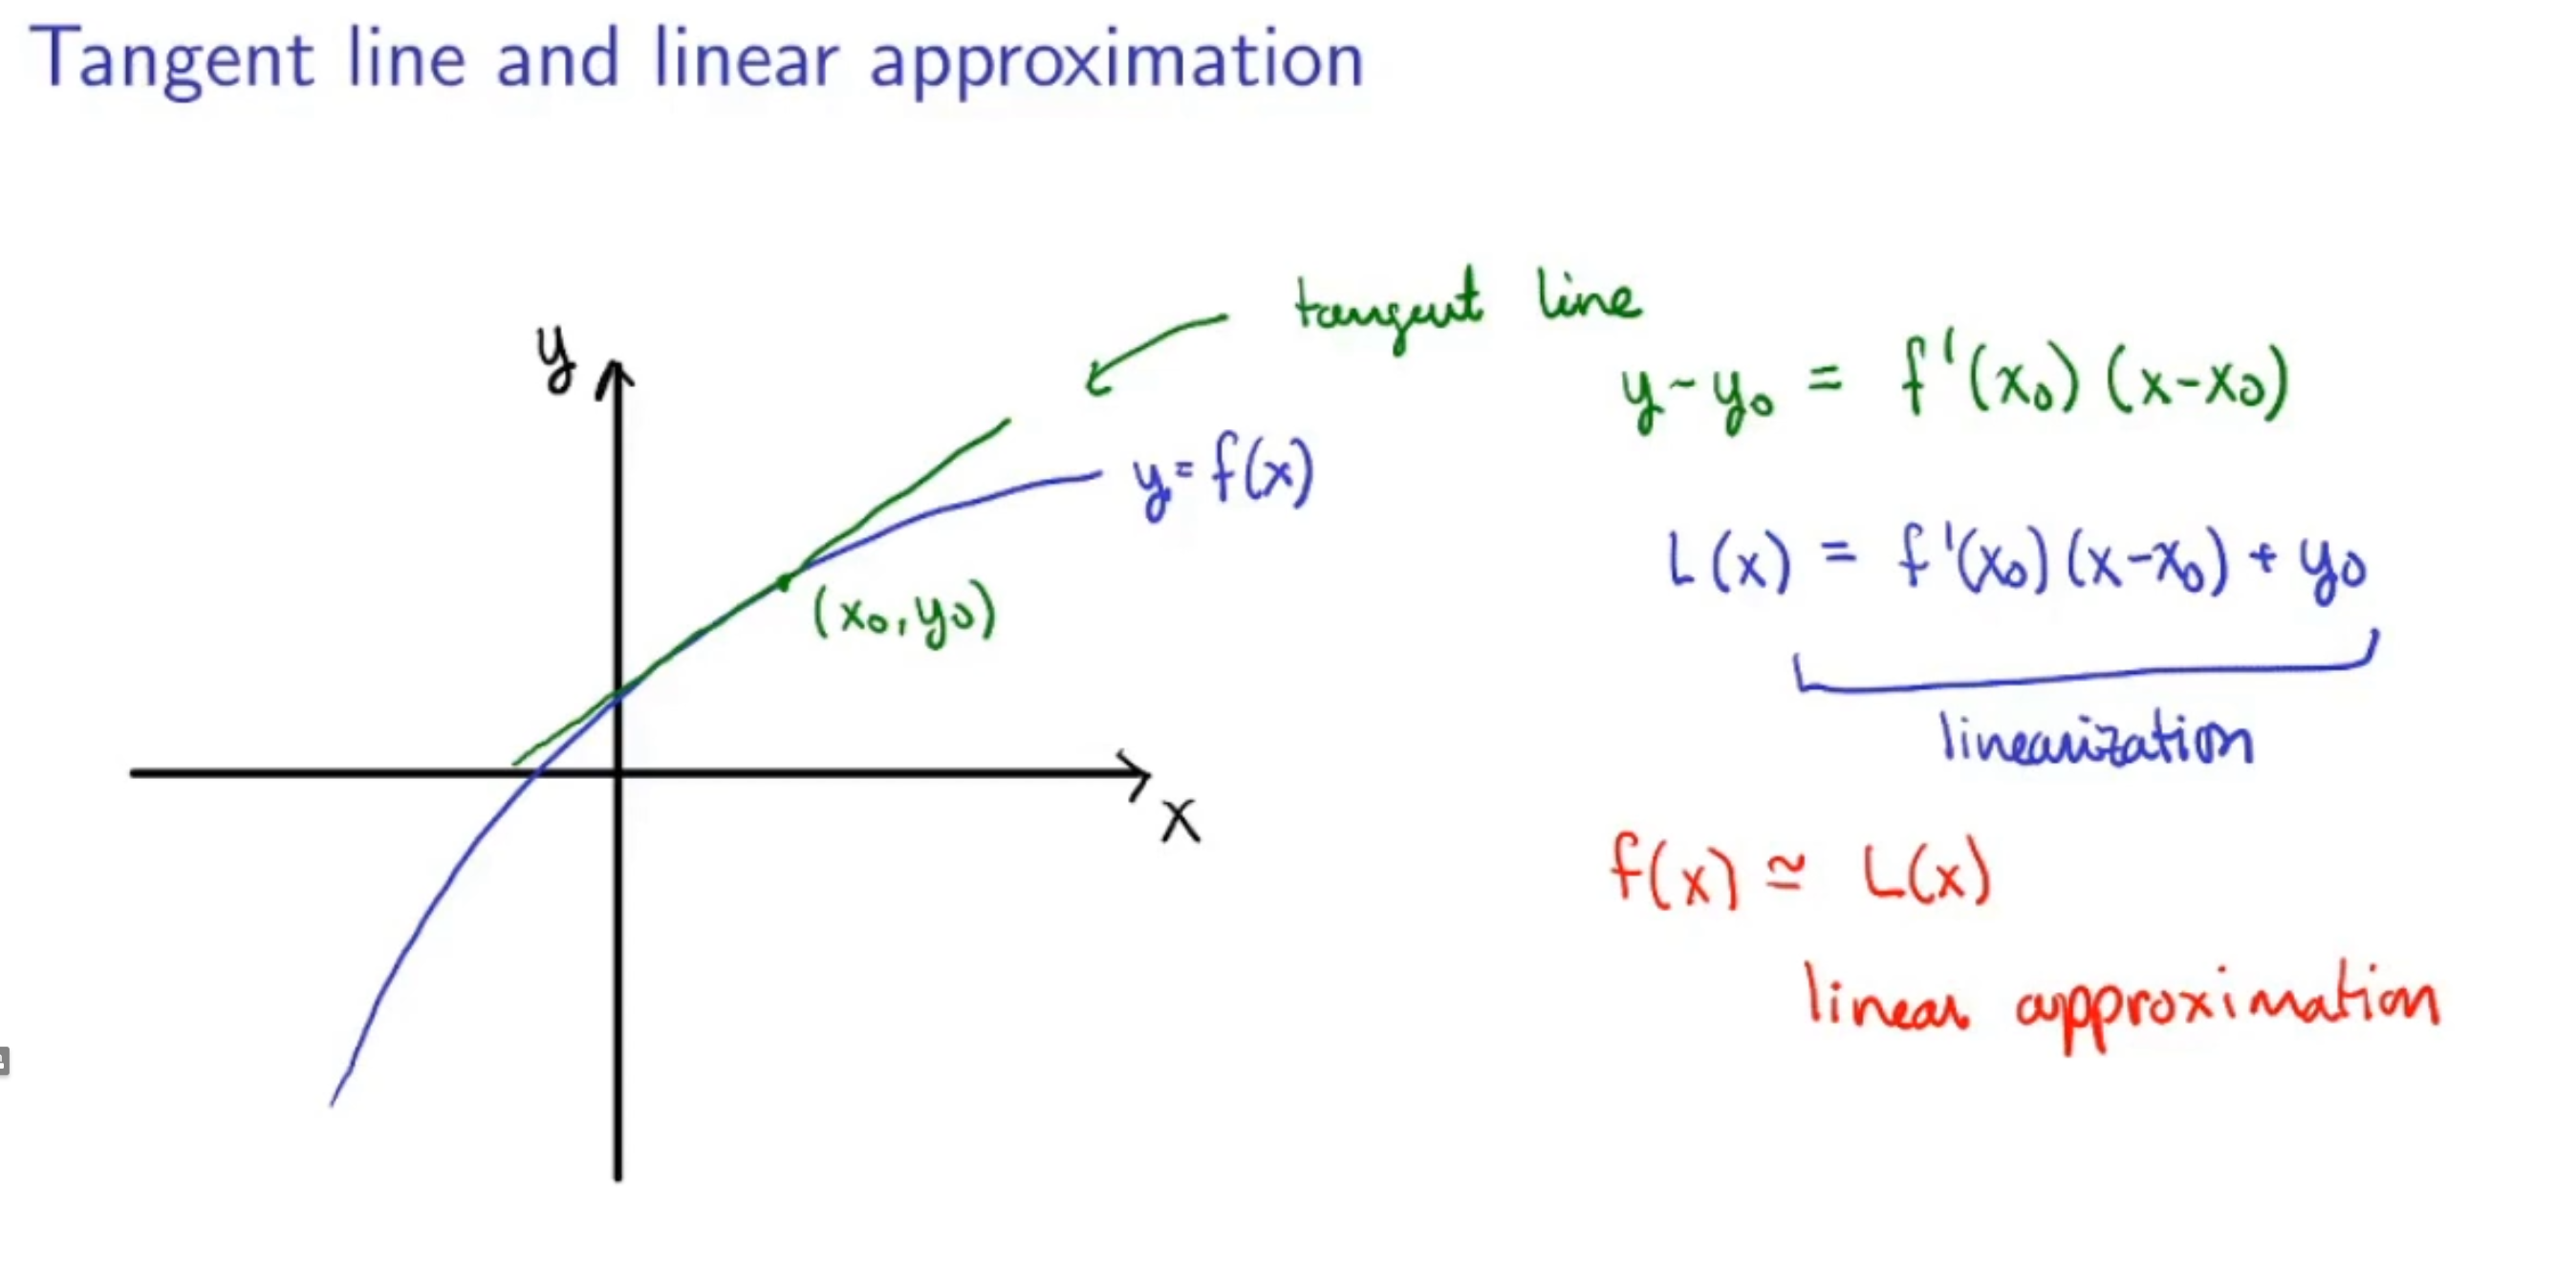 Tangent line and linear approximation
tangent line
y
y-y₀ = f'(x₀)(x-x₀)
y=f(x)
L(x) = f'(x₀)(x-x₀) + y₀
(x₀,y₀)
linearization
x
f(x) ≃ L(x)
linear approximation